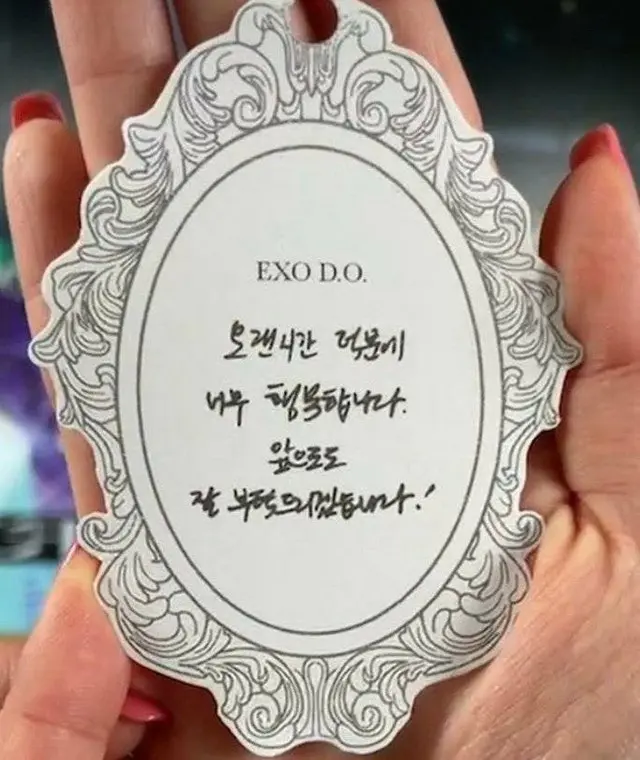 EXO D.O.
오랜시간 덕분에
너무 행복합니다.
앞으로도
잘 부탁드리겠습니다!